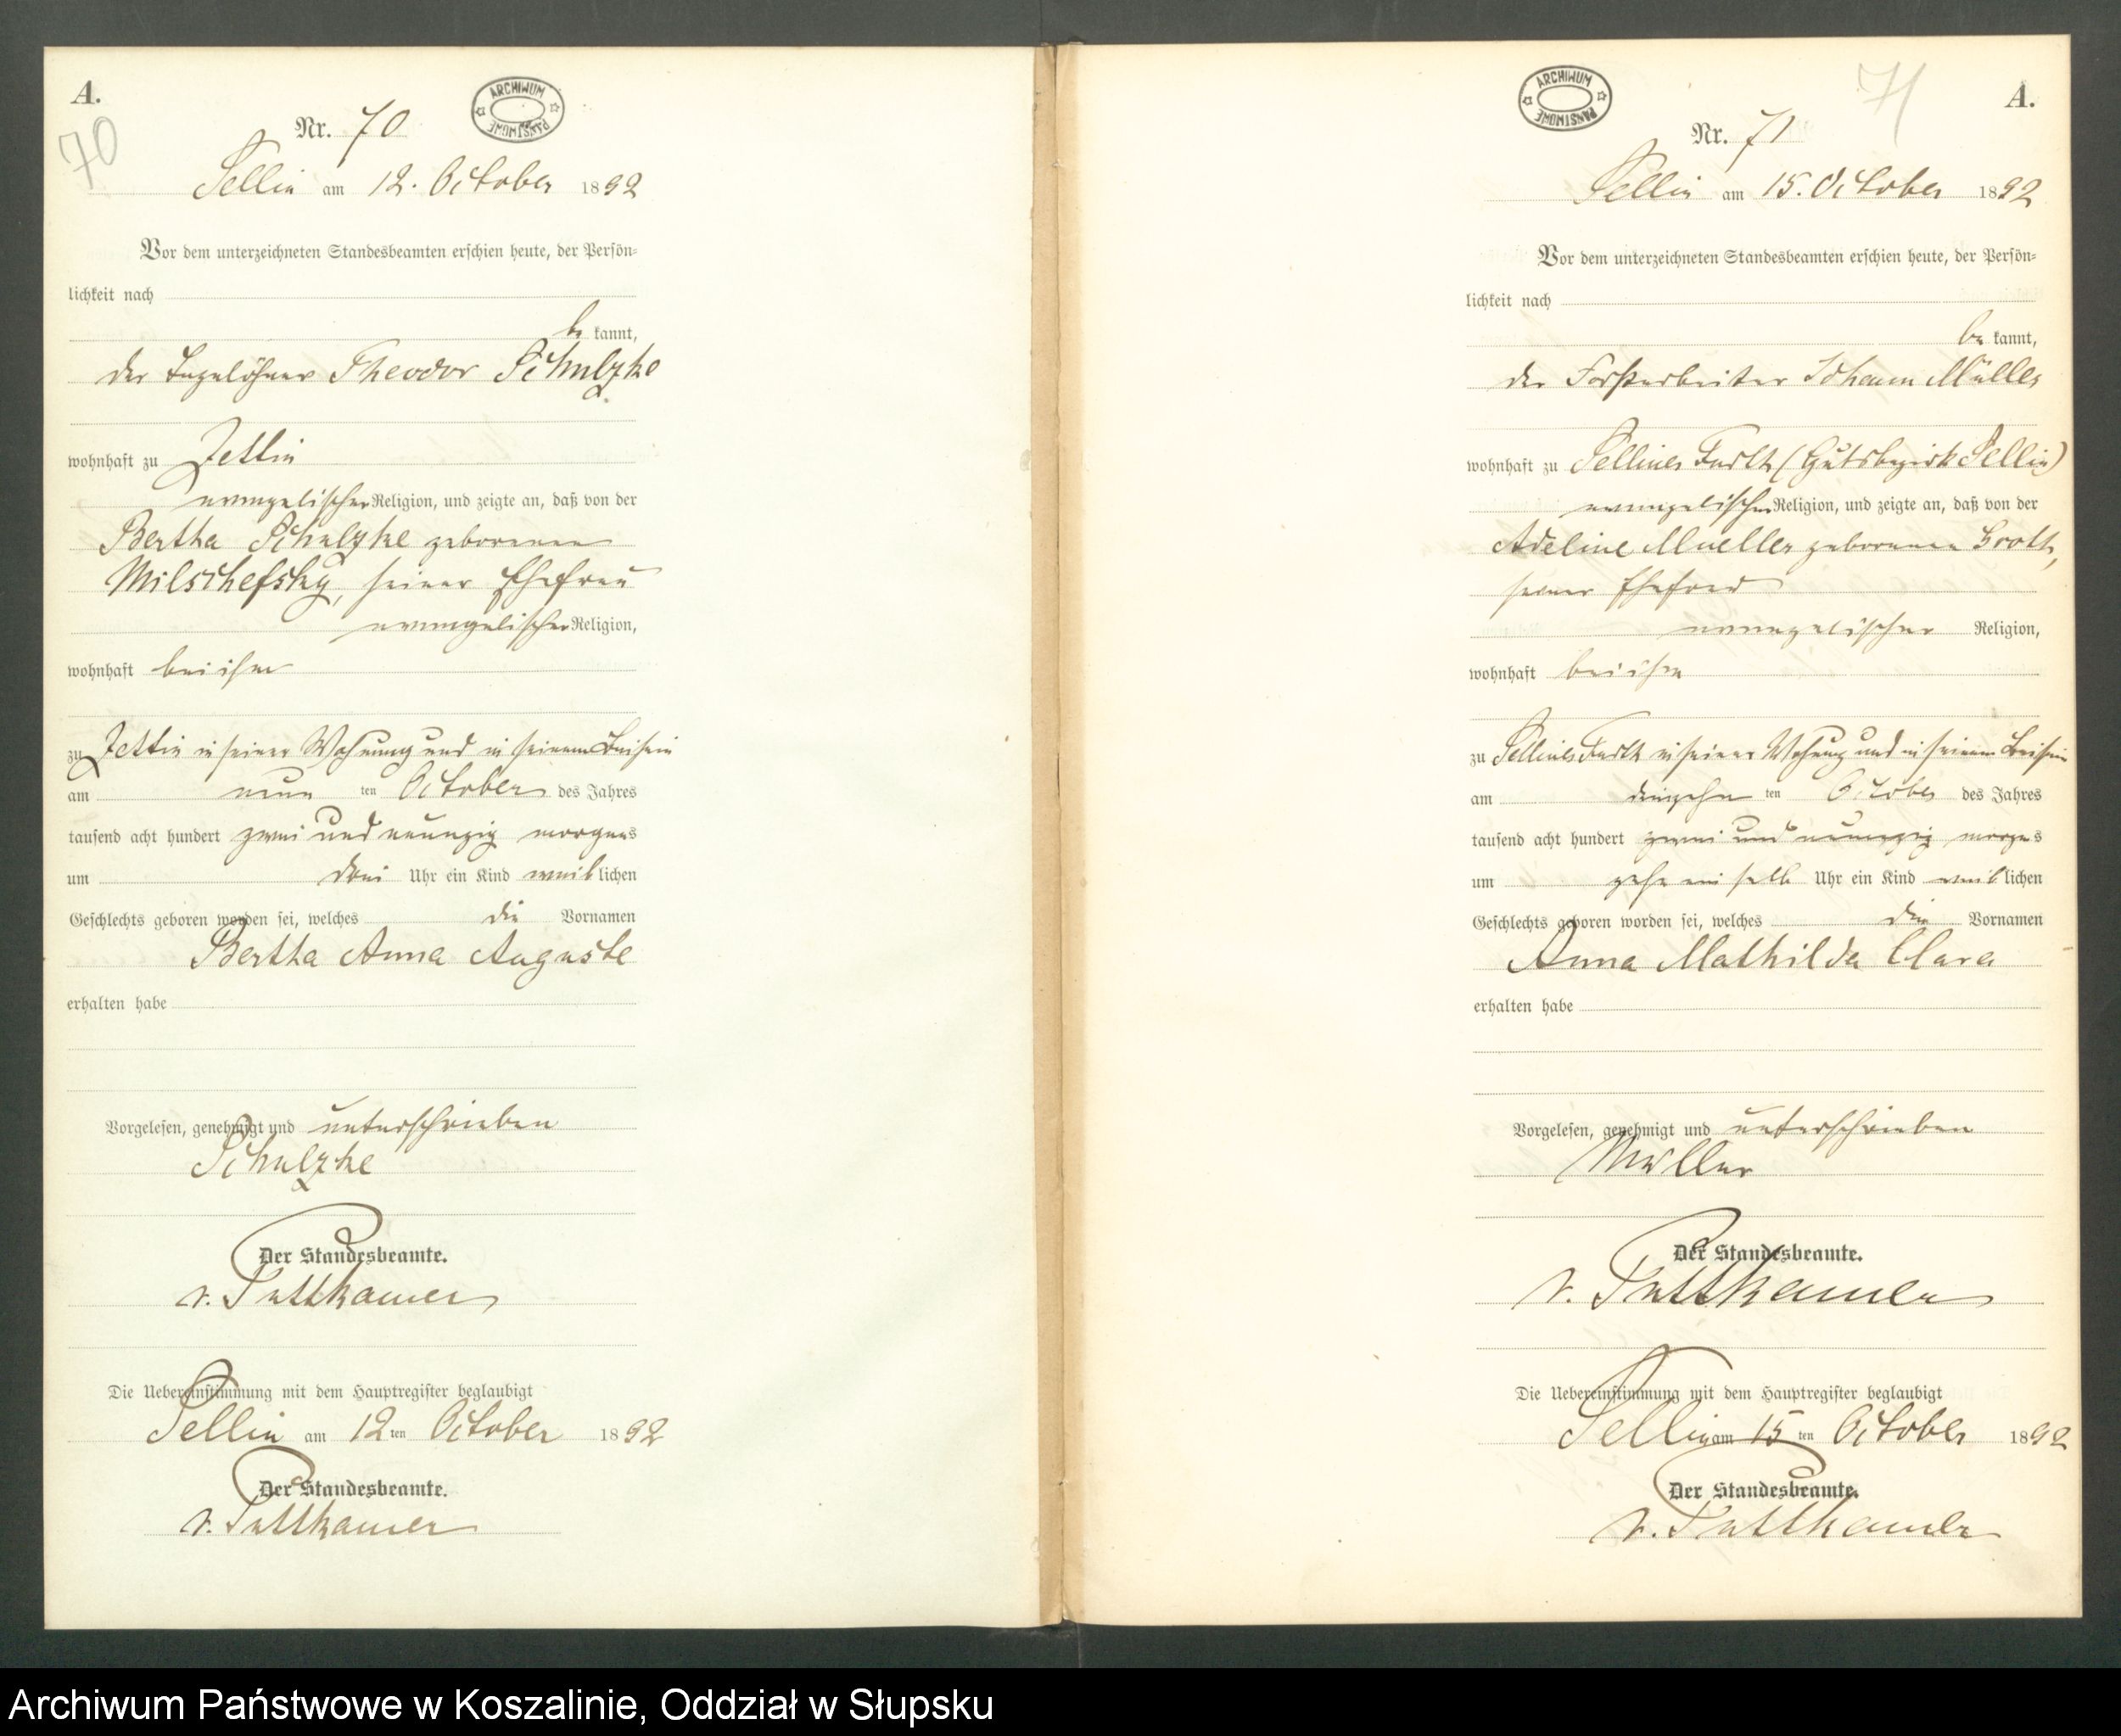 A.
70
ARCHIWUM PAŃSTWOWE
Nr. 70
Sellin am 12. October 1892
Vor dem unterzeichneten Standesbeamten erschien heute, der Persön-
lichkeit nach
be kannt,
der Tagelöhner Theodor Schulzke
wohnhaft zu Zettin
evangelischer Religion, und zeigte an, daß von der
Bertha Schulzke geborenen
Milschefsky, seiner Ehefrau
evangelischer Religion,
wohnhaft bei ihm
zu Zettin in seiner Wohnung und in seinem Beisein
am neun ten October des Jahres
tausend acht hundert zwei und neunzig morgens
um drei Uhr ein Kind weib lichen
Geschlechts geboren worden sei, welches die Vornamen
Bertha Anna Auguste
erhalten habe
Vorgelesen, genehmigt und unterschrieben
Schulzke
Der Standesbeamte.
v. Puttkamer
Die Uebereinstimmung mit dem Hauptregister beglaubigt
Sellin am 12 ten October 1892
Der Standesbeamte.
v. Puttkamer
ARCHIWUM PAŃSTWOWE
71
A.
Nr. 71
Sellin am 15. October 1892
Vor dem unterzeichneten Standesbeamten erschien heute, der Persön-
lichkeit nach
be kannt,
der Forstarbeiter Johann Müller
wohnhaft zuSelliner (Gutsbezirk Sellin)
evangelischer Religion, und zeigte an, daß von der
Adeline Mueller geborenen Groth,
seiner Ehefrau
evangelischer Religion,
wohnhaft bei ihm
zu Selliner in seiner Wohnung und in seinem Beisein
am dreizehn ten October des Jahres
tausend acht hundert zwei und neunzig morgens
um zehn ein halb Uhr ein Kind weib lichen
Geschlechts geboren worden sei, welches die Vornamen
Anna Mathilda Clara
erhalten habe
Vorgelesen, genehmigt und unterschrieben
Müller
Der Standesbeamte.
v. Puttkamer
Die Uebereinstimmung mit dem Hauptregister beglaubigt
Sellin am 15 ten October 1892
Der Standesbeamte.
v. Puttkamer
Archiwum Państwowe w Koszalinie, Oddział w Słupsku